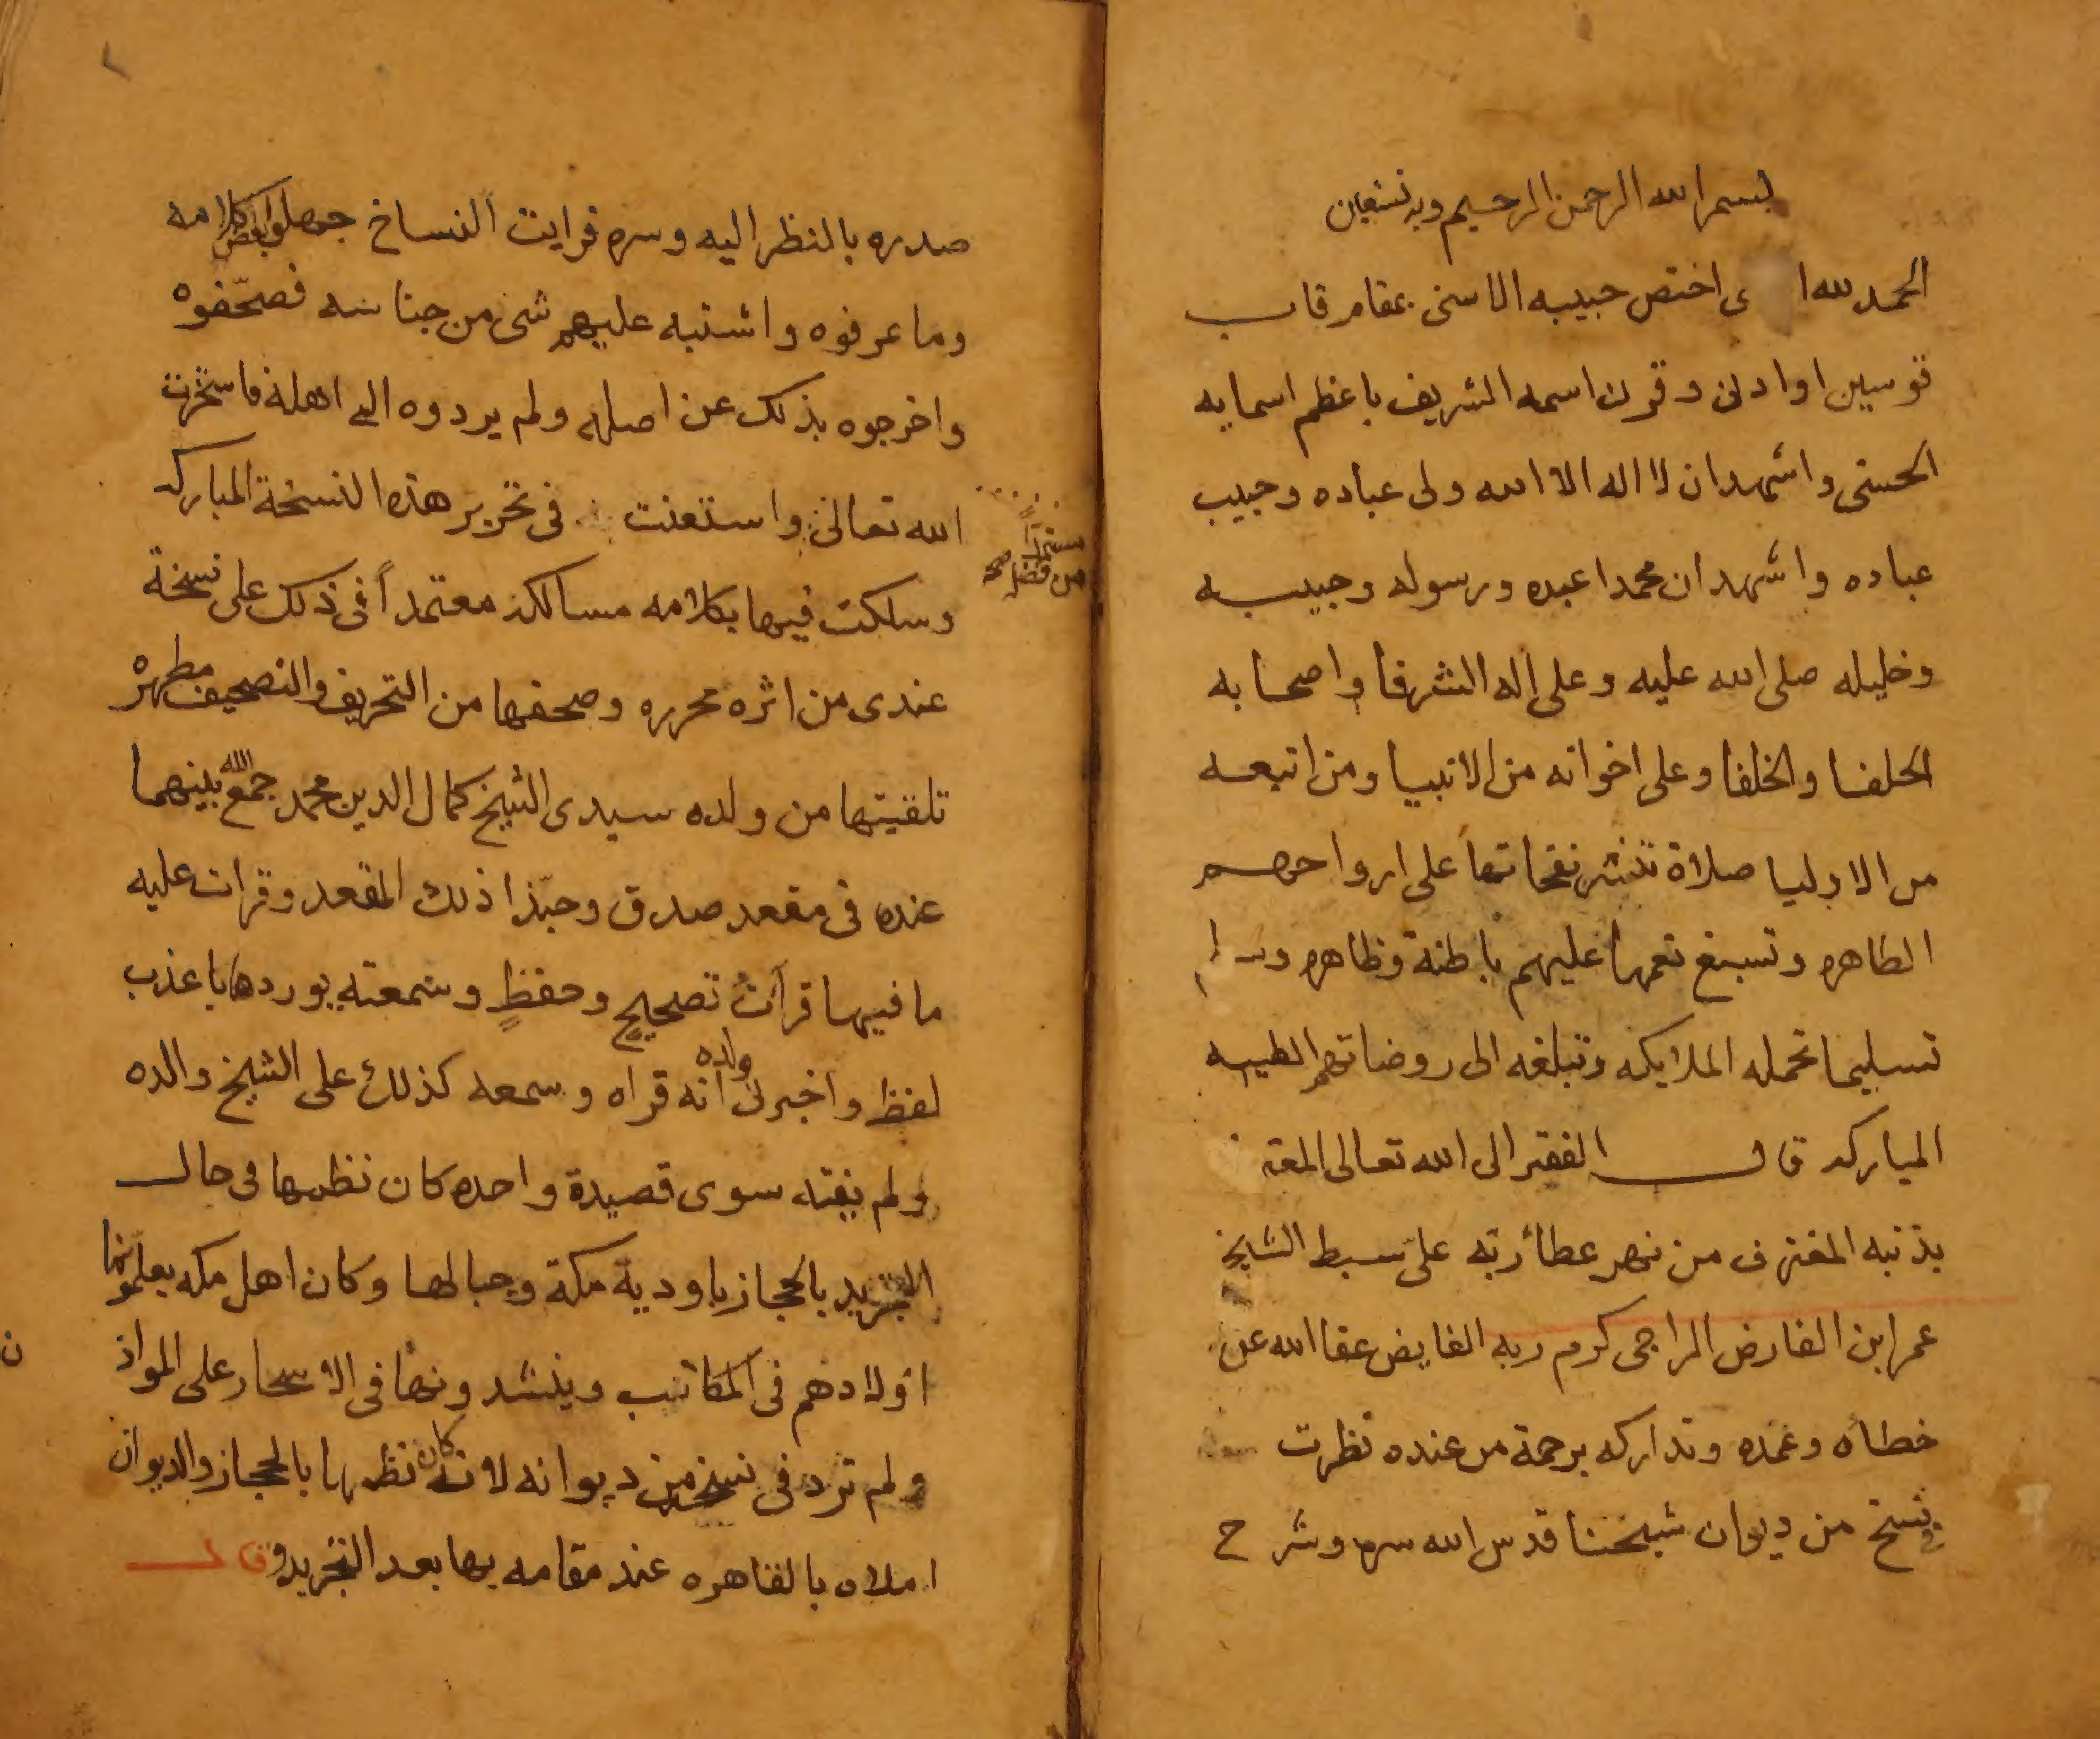 بسم الله الرحمن الرحيم وبه نستعين
الحمد لله ا ى اختص حبيبه الاسنى بمقام قاب
قوسين او ادنى وقرن اسمه الشريف باعظم اسمايه
الحسنى واشهد ان لا اله الا الله ولى عباده وحبيب
عباده واشهد ان محمدا عبده ورسوله وحبيبه
وخليله صلى الله عليه وعلى اله الشرفا واصحابه
الحلفا والخلفا وعلى اخوانه من الانبيا ومن اتبعه
من الاوليا صلاة تنشر نفحاتها على ارواحهم
الطاهره وتسبغ نعمها عليهم باطنة وظاهره وسلم
تسليما تحمله الملايكه وتبلغه الى روضاتهم الطيبه
المباركه قال الفقير الى الله تعالى المعترف
بذنبه المغترف من نهر عطاء ربه على سبط الشيخ
عمر ابن الفارض الراجى كرم ربه الفايض عفا الله عن
خطاه وعمده وتداركه برحمة من عنده نظرت
فى نسخ من ديوان شيخنا قدس الله سره وشرح
صدره بالنظر اليه وسره فرايت النساخ جهلوا بعض كلامه
وما عرفوه واشتبه عليهم شى من جناسه فصحّفوه
واخرجوه بذلك عن اصله ولم يردوه الى اهله فاستخرت
الله تعالى واستعنت فى تحرير هذه النسخة المباركه
مستمداً
من فضله صح
وسلكت فيها بكلامه مسالكه معتمداً فى ذلك على نسخة
عندى من اثره محرره وصحفها من التحريف والتصحيف مطهره
تلقيتها من ولده سيدى الشيخ كمال الدين محمد جمع الله بينهما
عنده فى مقعد صدق وحبّذا ذلك المقعد وقرات عليه
ما فيها قرآت تصحيحٍ وحفظٍ وسمعته يوردها باعذب
لفظ واخبرنى ولده انه قراه وسمعه كذلك على الشيخ والده
ولم يفته سوى قصيدة واحده كان نظمها فى حال
التجريد بالحجاز باودية مكة وجبالها وكان اهل مكه يعلمونها
اولادهم فى المكاتب وينشدونها فى الاسحار على المواذ
ن
ولم ترد فى نسخ من ديوانه لانه كان نظمها بالحجاز والديوان
املاه بالقاهره عند مقامه بها بعد التجريد وقال